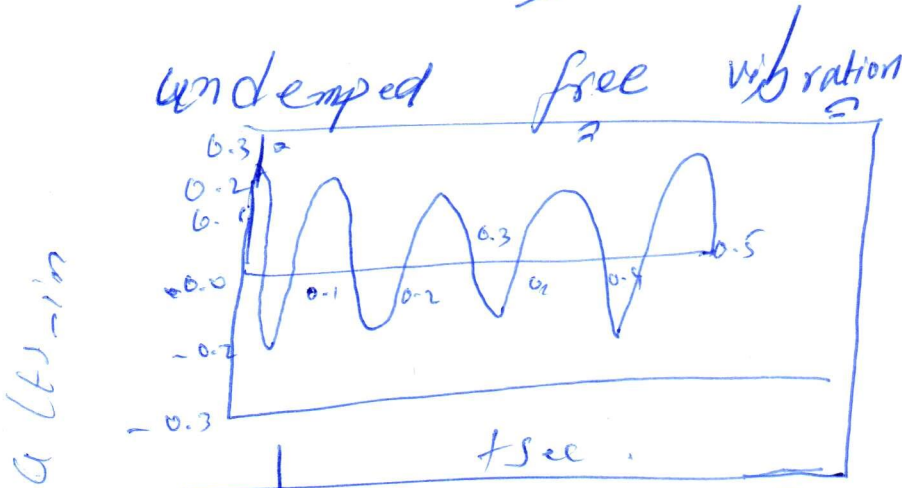 undemped free vibration
0.3
0.2
0.3
0.5
-0.0
0.1
0.2
0.4
-0.2
-0.3
u (t)-in
t sec.